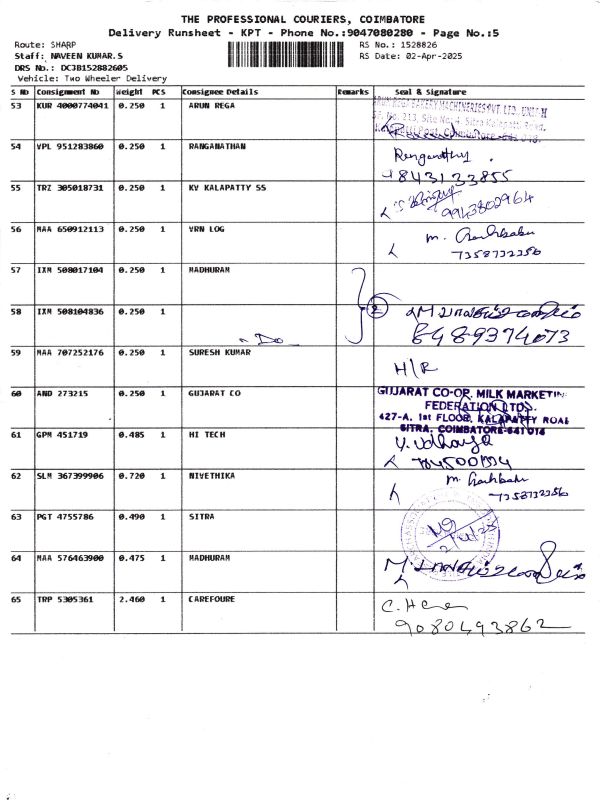 THE PROFESSIONAL COURIERS, COIMBATORE
Delivery Runsheet - KPT - Phone No.:9047080280 - Page No.:5
Route: SHARP
RS No.: 1528826
Staff: NAVEEN KUMAR.S
RS Date: 02-Apr-2025
DRS No.: DC3B152882605
Vehicle: Two Wheeler Delivery
S No Consignment No Weight PCS Consignee Details Remarks Seal & Signature
53 KUR 4000774041 0.250 1 ARUN REGA
54 VPL 951283860 0.250 1 RANGANATHAN
Renganathy
9843133855
55 TRZ 305018731 0.250 1 KV KALAPATTY SS
9943802964
56 MAA 650912113 0.250 1 VRN LOG
7358732356
57 IXM 508017104 0.250 1 MADHURAM
58 IXM 508104836 0.250 1
- Do - 2
8489374073
59 MAA 707252176 0.250 1 SURESH KUMAR H/R
60 AND 273215 0.250 1 GUJARAT CO
GUJARAT CO-OP. MILK MARKETIN
FEDERATION LTD.
427-A, 1st FLOOR, KALAPATTY ROAD
SITRA, COIMBATORE-641 014
61 GPM 451719 0.485 1 HI TECH
Y. Udhaya
62 SLM 367399906 0.720 1 NIVETHIKA
7358732356
63 PGT 4755786 0.490 1 SITRA
64 MAA 576463900 0.475 1 MADHURAM
65 TRP 5305361 2.460 1 CAREFOURE
9080493862